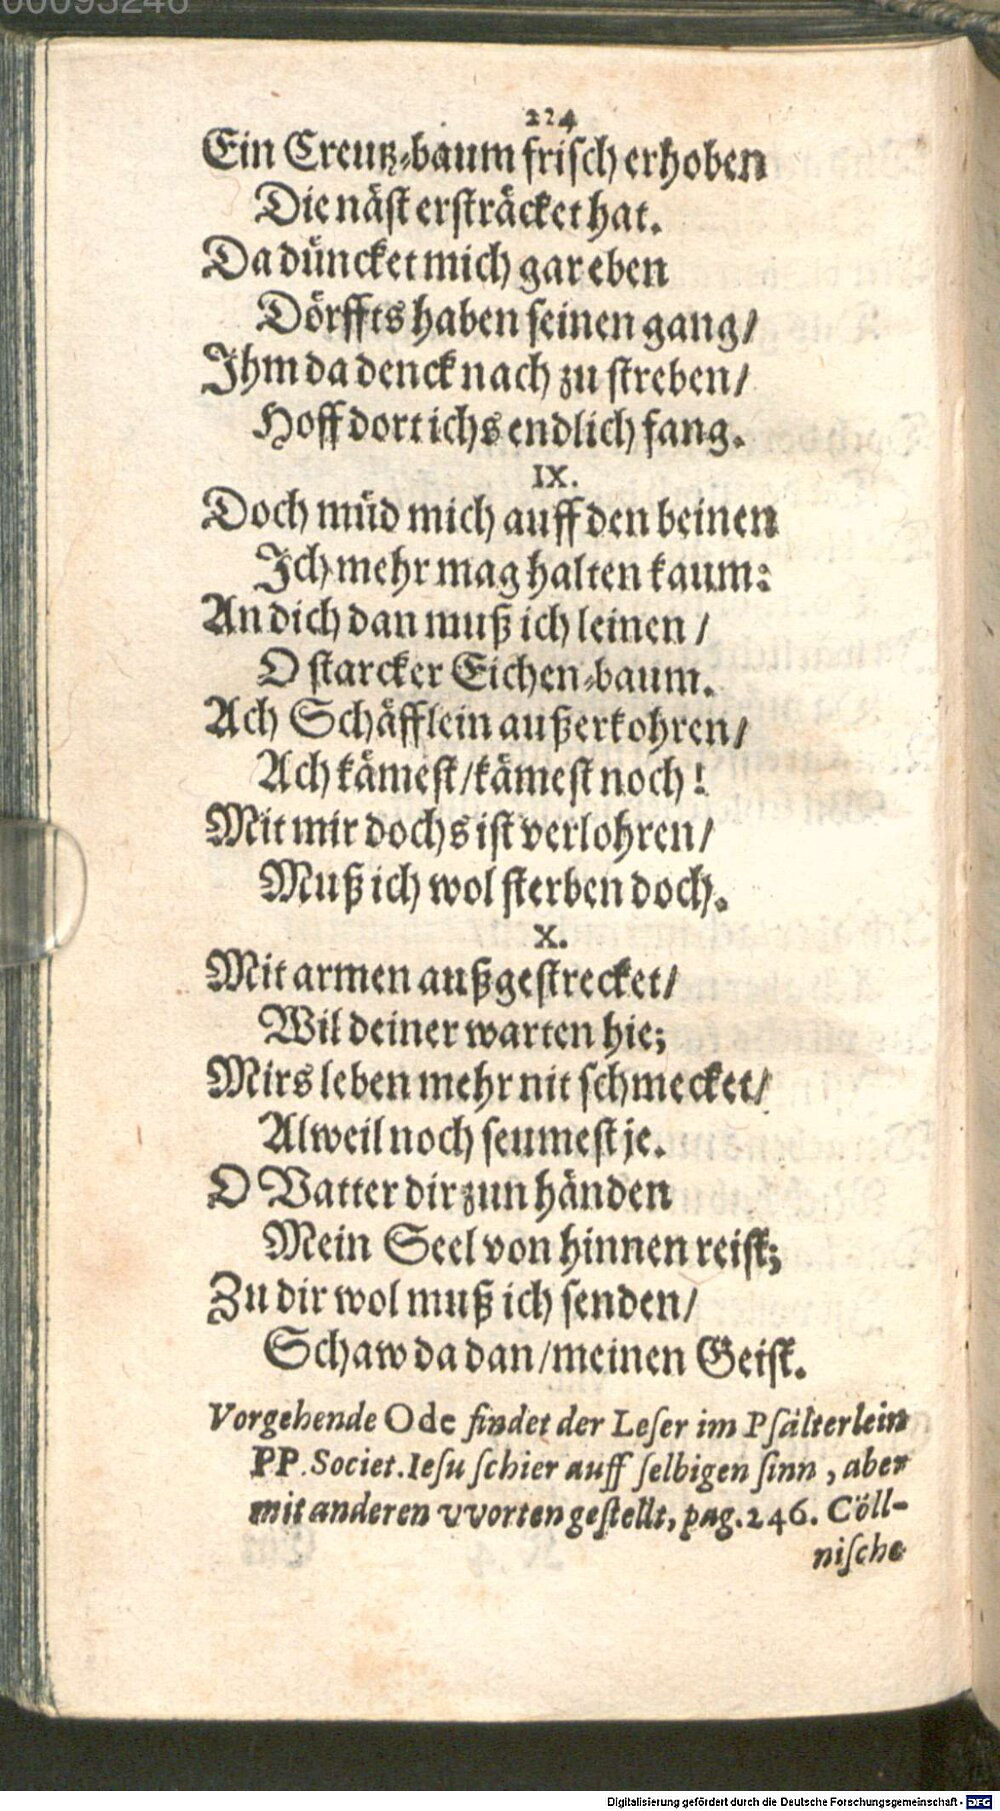 00095246
224
Ein Creutz-baum frisch erhoben
Die näst ersträcket hat.
Da düncket mich gar eben
Dörffts haben seinen gang/
Ihm da denck nach zu streben/
Hoff dort ichs endlich fang.
IX.
Doch müd mich auff den beinen
Ich mehr mag halten kaum:
An dich dan muß ich leinen /
O starcker Eichen-baum.
Ach Schäfflein außerkohren/
Ach kämest/kämest noch!
Mit mir dochs ist verlohren/
Muß ich wol sterben doch.
X.
Mit armen außgestrecket/
Wil deiner warten hie;
Mirs leben mehr nit schmecket/
Alweil noch seumest je.
O Vatter dir zun händen
Mein Seel von hinnen reist;
Zu dir wol muß ich senden/
Schaw da dan/meinen Geist.
Vorgehende Ode findet der Leſer im Pſälterlein
PP. Societ. Ieſu ſchier auff ſelbigen ſinn , aber
mit anderen vvorten geſtellt, pag. 246. Cöll-
niſche
Digitalisierung gefördert durch die Deutsche Forschungsgemeinschaft - DFG